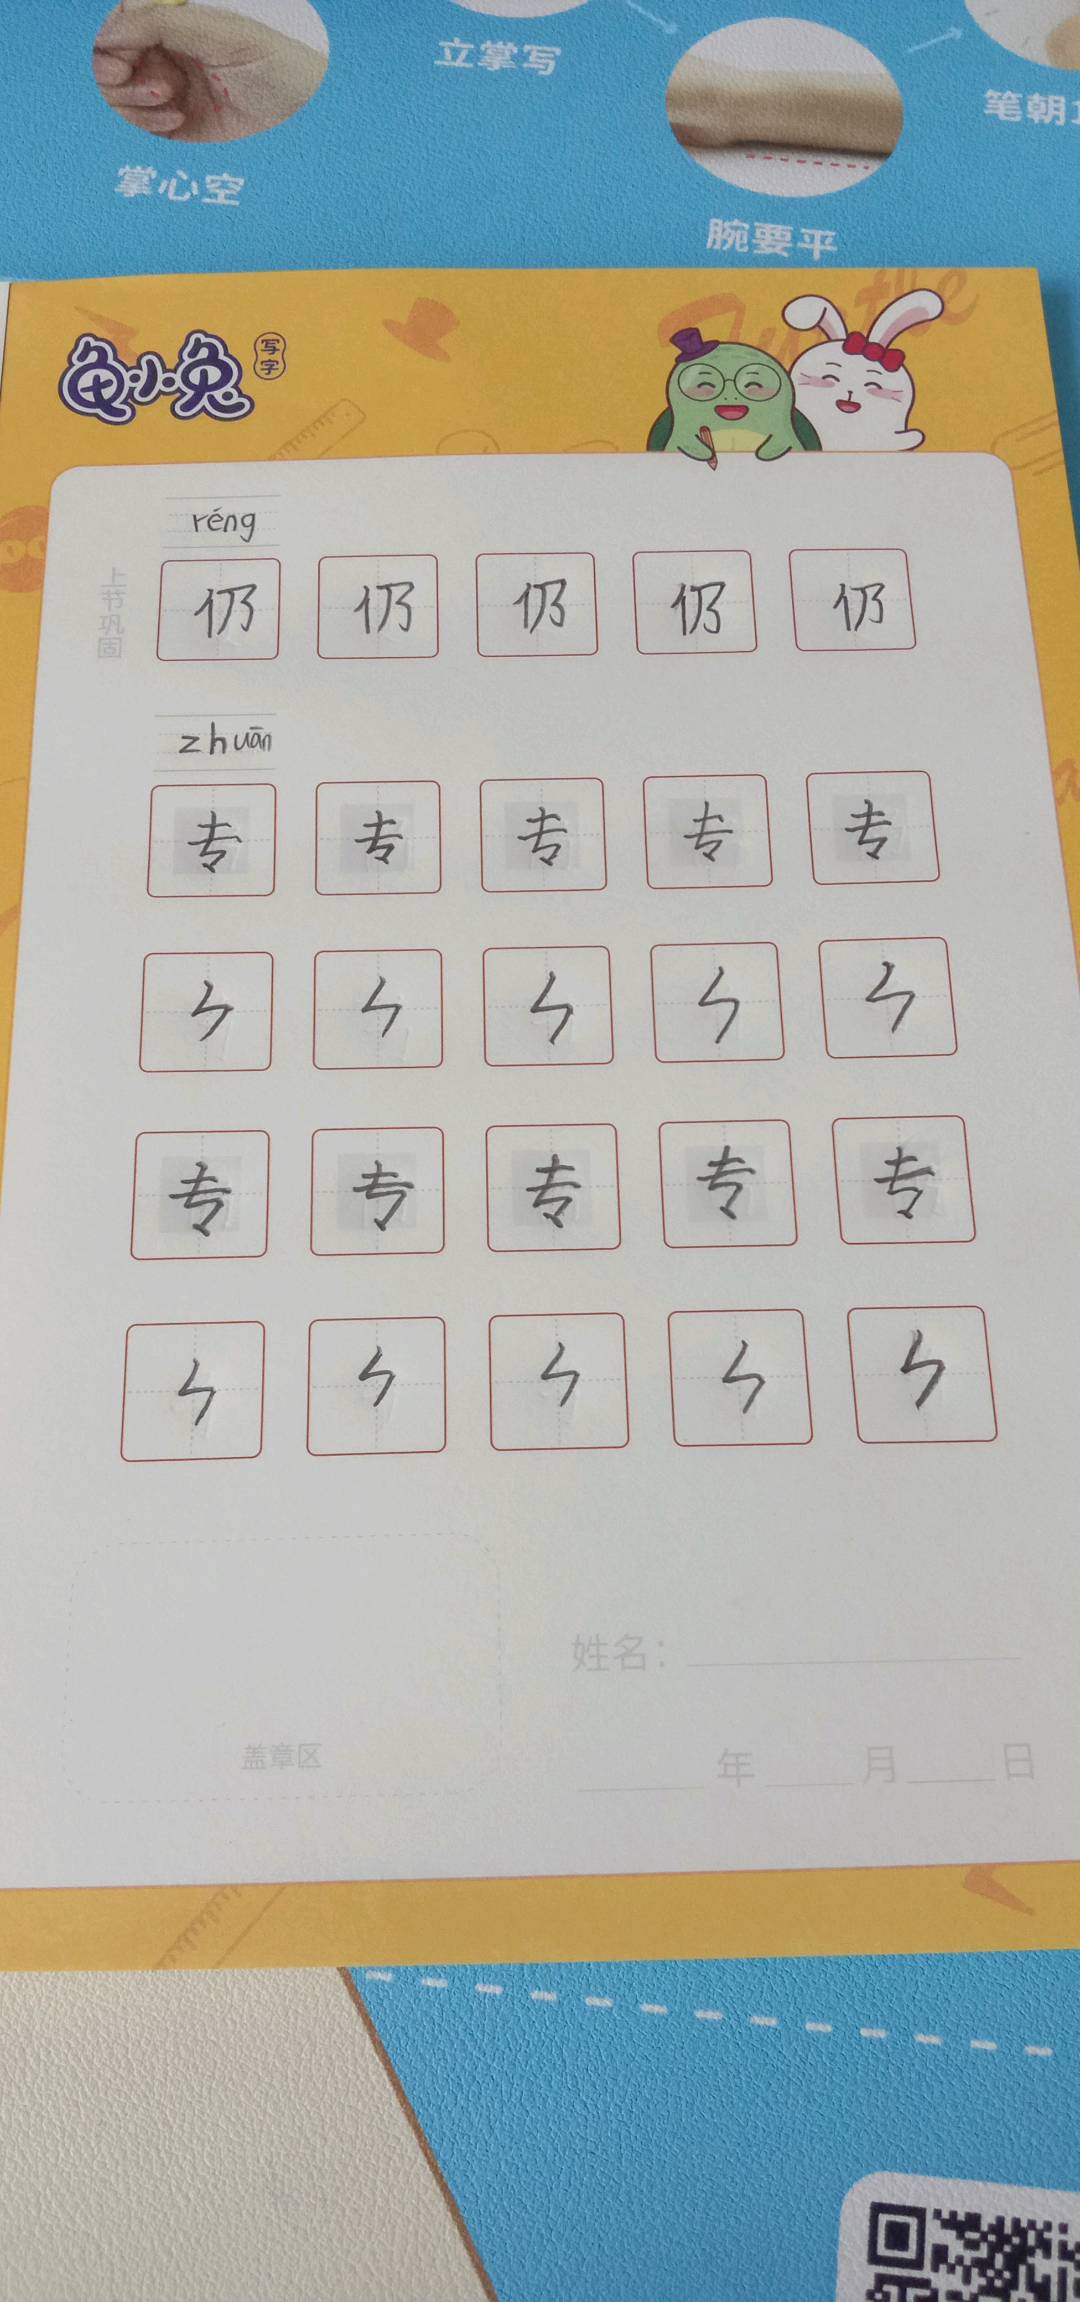 立掌写
笔朝
掌心空
腕要平
龟小兔 写字
réng
上节巩固
仍 仍 仍 仍 仍
zhuān
专 专 专 专 专
ㄣ ㄣ ㄣ ㄣ ㄣ
专 专 专 专 专
ㄣ ㄣ ㄣ ㄣ ㄣ
姓名:
盖章区
年 月 日